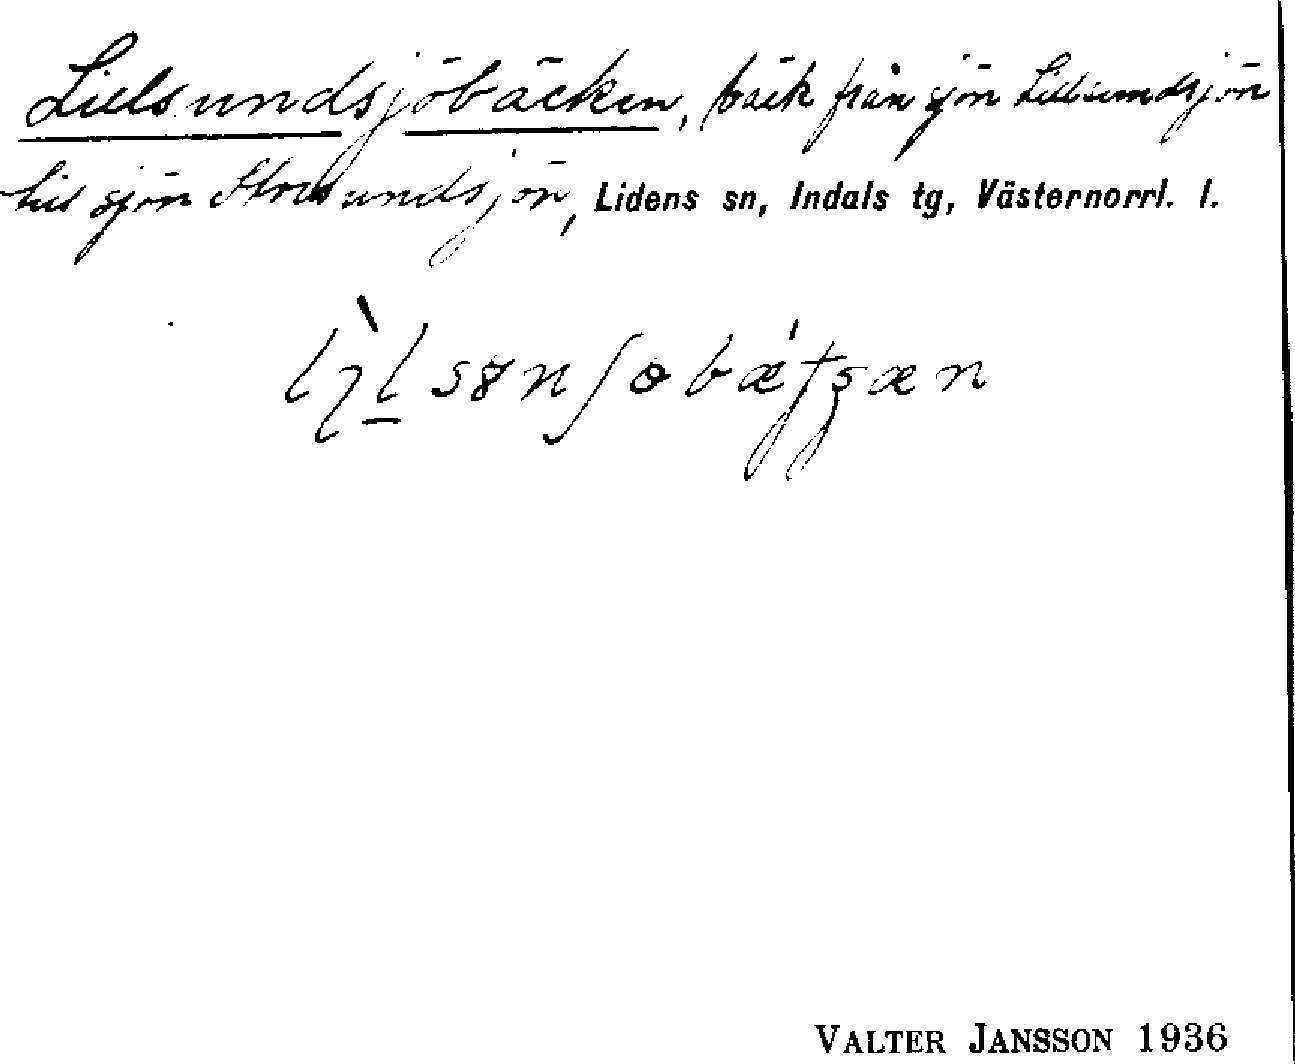 Lillsundsjöbäcken, bäck från sjön Lillsundsjön
till sjön Storsundsjön, Lidens sn, Indals tg, Västernorrl. l.
VALTER JANSSON 1936